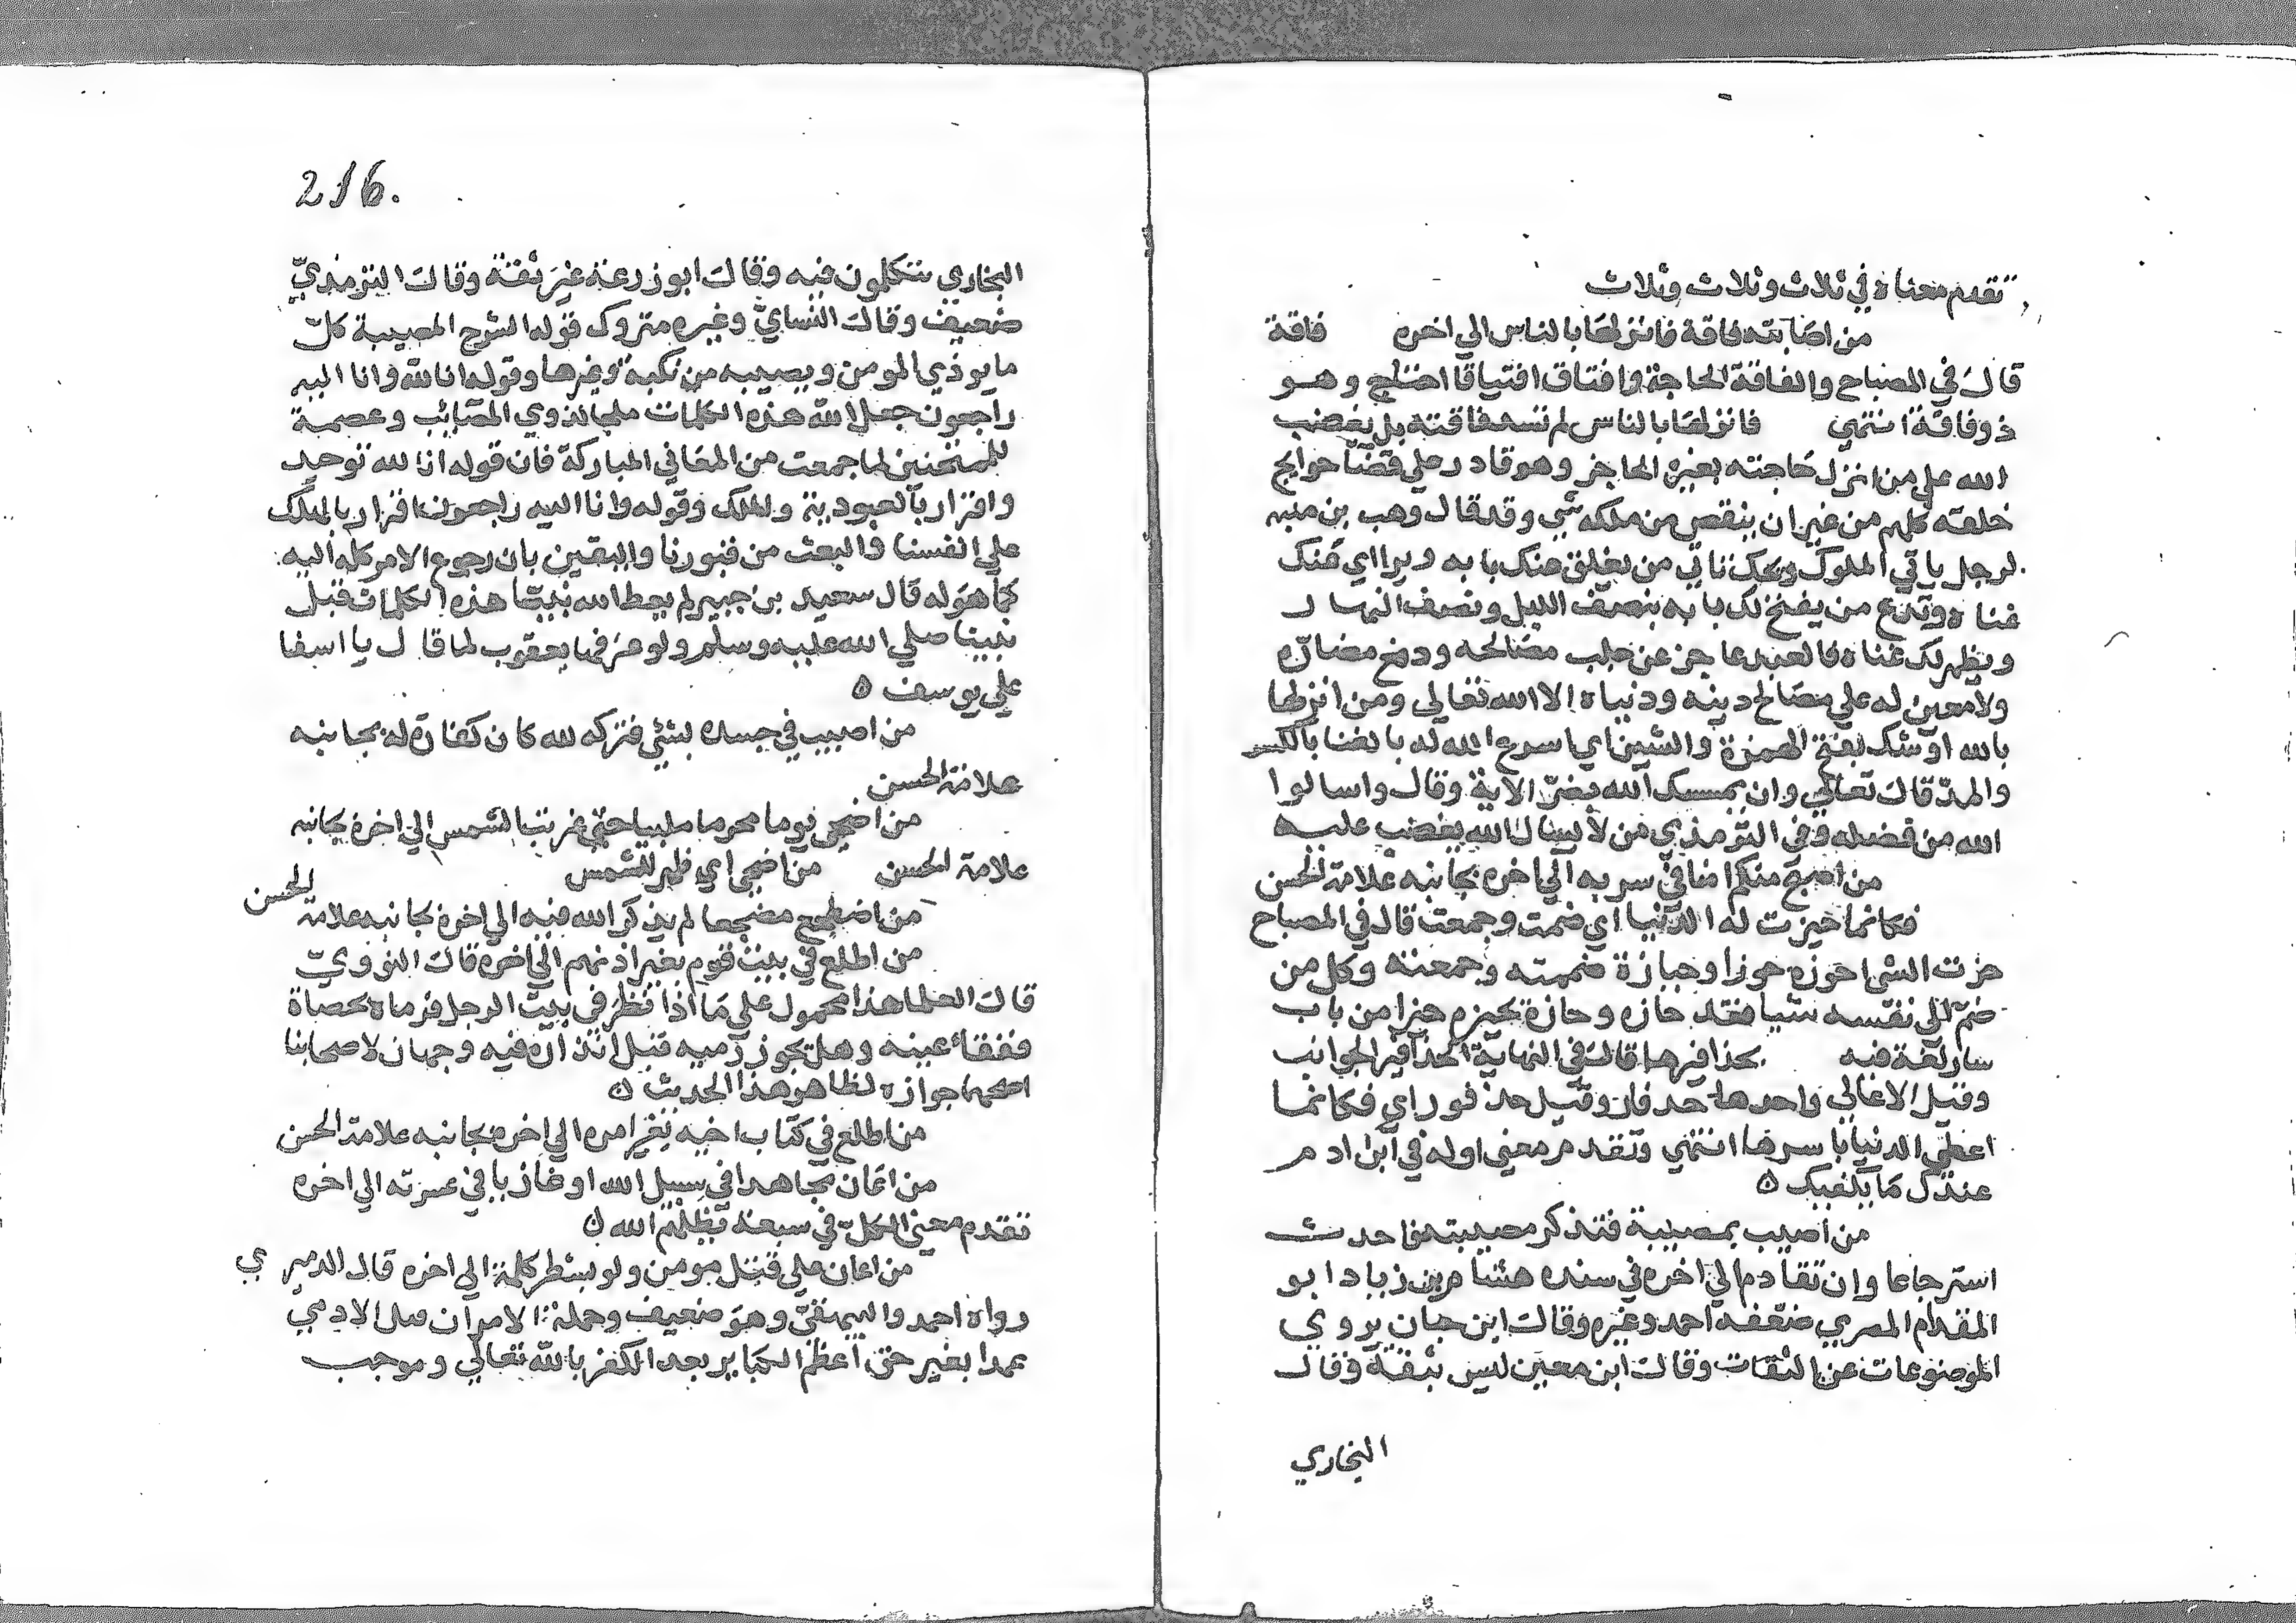 تقدم معناه في ثلاث وثلاث وثلاث
من اصابته فاقة فانزلها بالناس الي اخره فاقة
قال في المصباح والفاقة الحاجة وافتاق افتياقا احتاج وهو
ذو فاقة انتهي فانزلها بالناس لم تسد فاقته بل يغضب
الله علي من انزل حاجته بغيره العاجز وهو قادر علي قضا حوايج
خلقه كلهم من غير ان ينقص من ملكه شي وقد قال وهب بن منبه
لرجل ياتي الملوك ويحك تاتي من يغلق عنك بابه ويواري عنك
غناه وتدع من يفتح لك بابه بنصف الليل ونصف النهار
ويظهر لك غناه فالعبد عاجز عن جلب مصالحه ودفع مضاره
ولا معين له علي مصالح دينه ودنياه الا الله تعالي ومن انزلها
بالله اوشك بفتح الهمزة والشين اي اسرع الله له بالغنا بالكسر
والمد قال تعالي وان يمسسك الله بضر الاية وقال واسالوا
الله من فضله وفي الترمذي من لا يسال الله يغضب عليه
من اصبح منكم امنا في سربه الي اخره بجانبه علامة الحسن
فكانما حيزت له الدنيا اي ضمت وجمعت قال في المصباح
حزت الشي احوزه حوزا وحيازة ضممته وجمعته وكل من
ضم الي نفسه شيا فقد حازه وحازه يحيزه حيزا من باب
سار لغة فيه بحذافيرها قال في النهاية الحذافير الجوانب
وقيل الاعالي واحدها حدفار وقيل حذفور اي فكانما
اعطي الدنيا باسرها انتهي وتقدم معني اوله في ابن ادم
عندك ما يكفيك ه
من اصيب بمصيبة فتذكر مصيبته فاحدث
استرجاعا وان تقادم الي اخره في سنده هشام بن زياد ابو
المقدام المصري ضعفه احمد وغيره وقال ابن حبان يروي
الموضوعات عن الثقات وقال ابن معين ليس بثقة وقال
البخاري
216.
البخاري يتكلمون فيه وقال ابو زرعة غير ثقة وقال الترمذي
ضعيف وقال النسائي وغيره متروك قوله المصيبة كل
ما يوذي المومن ويصيبه من نكبة وغيرها وقوله انا لله وانا اليه
راجعون جعل الله هذه الكلمات ملجا لذوي المصائب وعصمة
للممتحنين لما جمعت من المعاني المباركة فان قوله انا لله توحيد
واقرار بالعبودية والملك وقوله وانا اليه راجعون اقرار بالهلك
علي انفسنا والبعث من قبورنا واليقين بان رجوع الامر كله اليه
كما هو له قال سعيد بن جبير لم يعط الله نبيا هذه الكلمات قبل
نبينا صلي الله عليه وسلم ولو عرفها يعقوب لما قال يا اسفا
علي يوسف ه
من اصيب في جسده بشئ فتركه لله كان كفارة له بجانبه
علامة الحسن
من اضحي يوما محرما ملبيا حتي غربت الشمس الي اخره بجانبه
علامة الحسن من اضحي اي ظهر للشمس
من اضطجع مضجعا لم يذكر الله فيه الي اخره بجانبه علامة الحسن
من اطلع في بيت قوم بغير اذنهم الي اخره قال النووي
قال العلما هذا محمول علي ما اذا نظر في بيت الرجل فرماه بحصاة
ففقأ عينه وهل يجوز رميه قبل انذاره فيه وجهان لاصحابنا
اصحهما جوازه لظاهر هذا الحديث ه
من اطلع في كتاب اخيه بغير امره الي اخره بجانبه علامة الحسن
من اعان مجاهدا في سبيل الله او غازيا في عسرته الي اخره
تقدم معني الكل في سبعة يظلهم الله ه
من اعان علي قتل مومن ولو بشطر كلمة الي اخره قال الدميري
رواه احمد والبيهقي وهو ضعيف وجملة الامر ان قتل الادمي
عمدا بغير حق اعظم الكباير بعد الكفر بالله تعالي وموجب